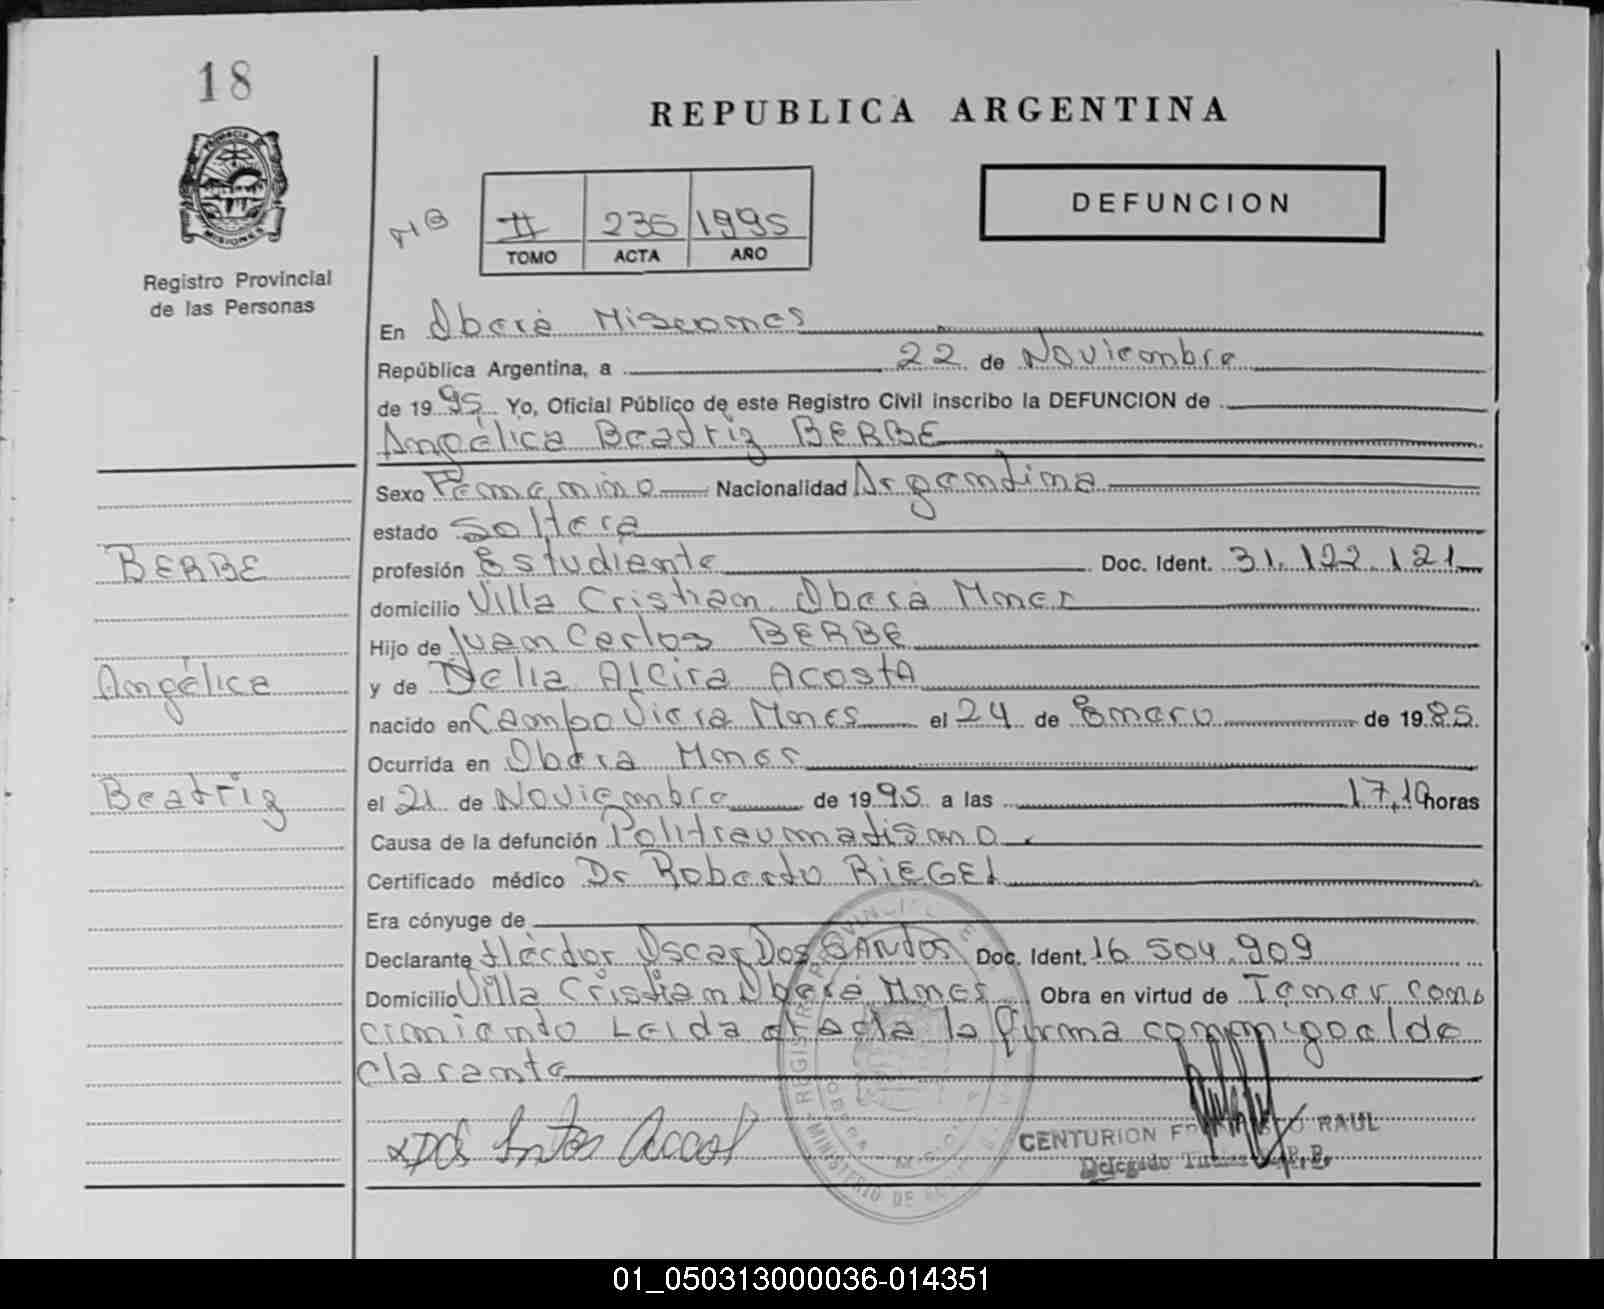 18
REPUBLICA ARGENTINA
DEFUNCION
II 235 1995
TOMO ACTA AÑO
MISIONES
Registro Provincial
de las Personas
En Oberá Misiones
República Argentina, a 22 de Noviembre
de 1995 Yo, Oficial Público de este Registro Civil inscribo la DEFUNCION de
Angélica Beatriz BERBE
Sexo Femenino Nacionalidad Argentina
estado Soltera
BERBE
profesión Estudiante Doc. Ident. 31.122.121
domicilio Villa Cristian Oberá Mnes
Hijo de Juan Carlos BERBE
Angélica
y de Delia Alcira Acosta
nacido en Campo Viera Mnes el 24 de Enero de 1985.
Ocurrida en Oberá Mnes
Beatriz
el 21 de Noviembre de 1995 a las 17,10 horas
Causa de la defunción Politraumatismo.
Certificado médico Dr Roberto RIEGEL
Era cónyuge de
Declarante Héctor Oscar Dos SANTOS Doc. Ident. 16 504.909
Domicilio Villa Cristian Oberá Mnes Obra en virtud de Tener cono
cimiento Leida el acta la firma conmigo el de
clarante
CENTURION RAUL
Delegado
01_050313000036-014351